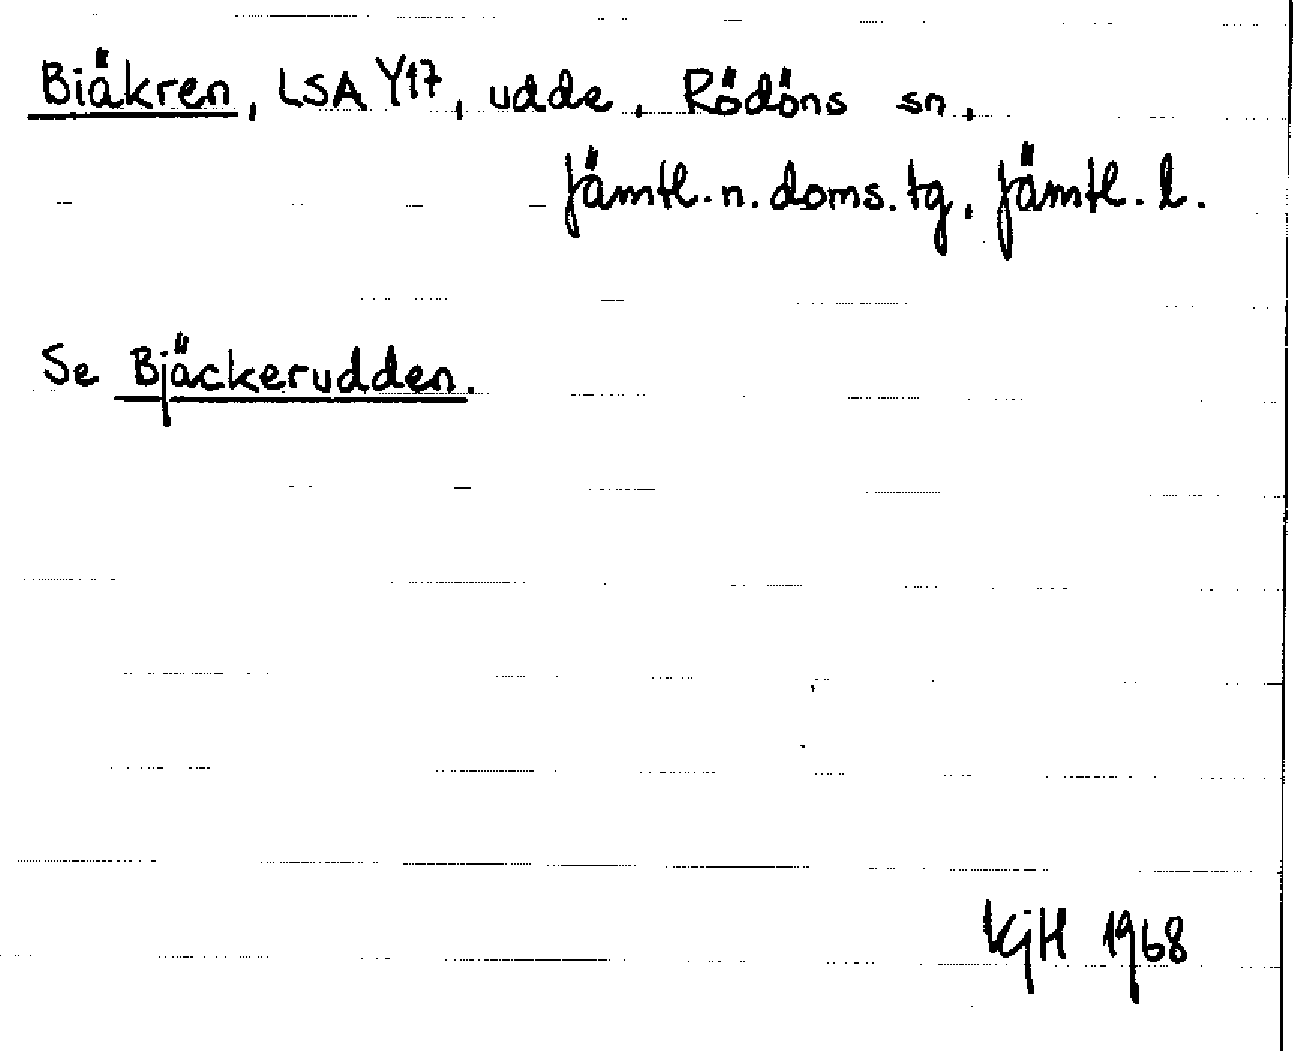 Biäkren, LSA Y17, udde, Rödöns sn,
Jämtl. n. doms. tg, Jämtl. l.
Se Bjäckerudden.
KjH 1968